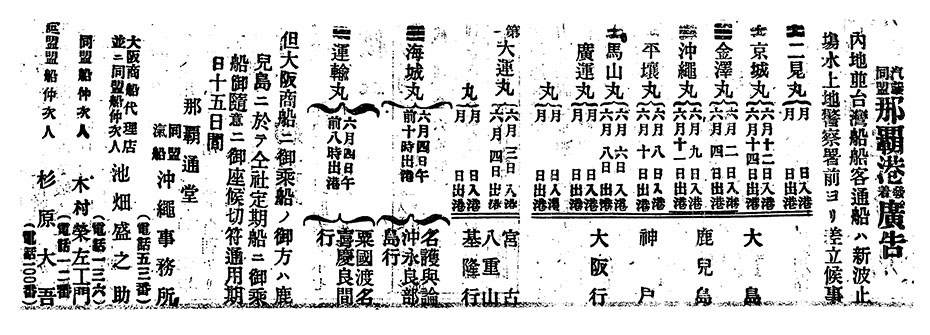 汽船同盟那覇港発着広告
内地並台湾船船客通船ハ新波止
場水上地警察署前ヨリ差立候事
二見丸 月 日入港 月 日出港
京城丸 六月十二日入港 六月十四日出港 大島
金澤丸 六月二日入港 六月四日出港
沖繩丸 六月九日入港 六月十一日出港 鹿兒島
平壤丸 六月八日入港 六月十日出港 神戸
馬山丸 六月六日入港 六月八日出港 大阪行
廣運丸 月 日入港 月 日出港
丸 月 日入港 月 日出港
第一大運丸 六月三日入港 六月四日出港 宮古
丸 月 日入港 月 日出港 八重山 基隆行
海城丸 六月四日午前十時出港 名護與論沖永良部島行
運輸丸 六月四日午前八時出港 粟國渡名喜慶良間行
但大阪商船ニ御乘船ノ御方ハ鹿
兒島ニ於テ仝社定期船ニ御乘
船御隨意ニ御座候切符通用期
日十五日間
那覇通堂
同盟滊船沖繩事務所
(電話五三番)
大阪商船代理店
並ニ同盟船仲次人 池畑盛之助
(電話一三六)
同盟船仲次人 木村榮左エ門
(電話一一二番)
同盟船仲次人 杉原大吾
(電話一〇〇番)